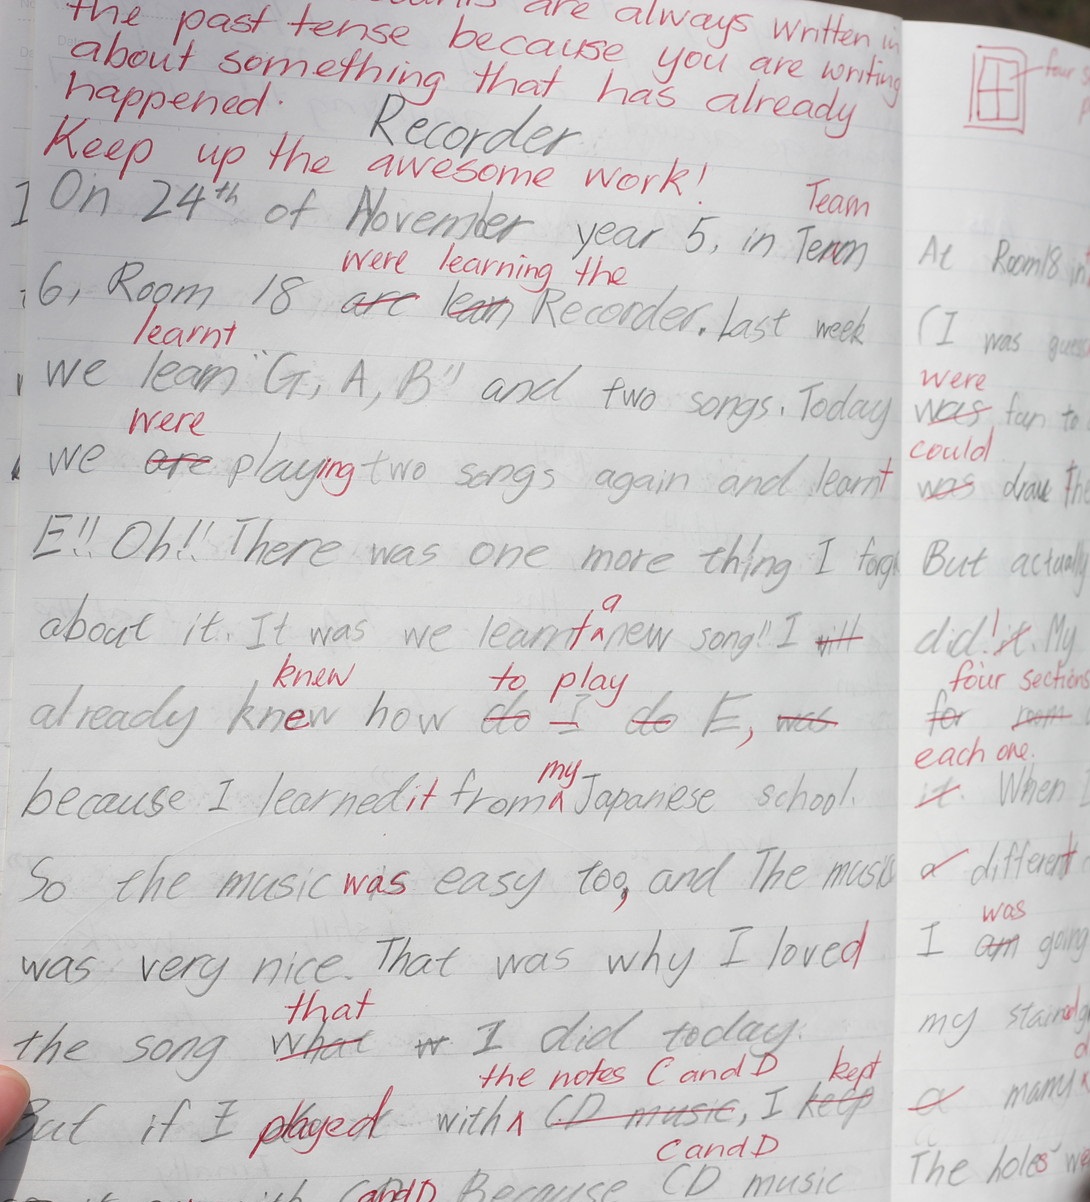 are always written in
the past tense because you are writing
about something that has already
happened.
Recorder
Keep up the awesome work!
Team
On 24th of November year 5, in Team
were learning the
6, Room 18 are lean Recorder. Last week
learnt
we learn "G, A, B" and two songs. Today
were
we are playing two songs again and learnt
E!! Oh!! There was one more thing I
about it. It was we learnt new song!! I will
a
knew to play
already knew how do I do E, was
my
because I learned it from Japanese school.
So the music was easy too, and The music
was very nice. That was why I loved
that
the song what I did today.
the notes C and D kept
But if I played with CD music, I keep
C and D
and D Because CD music
four
At Room 18 in
(I was
were
was fun to
could
was draw the
But actually
did! it. My
four sections
for room
each one.
it. When
a different
was
I am going
my
a many
The holes